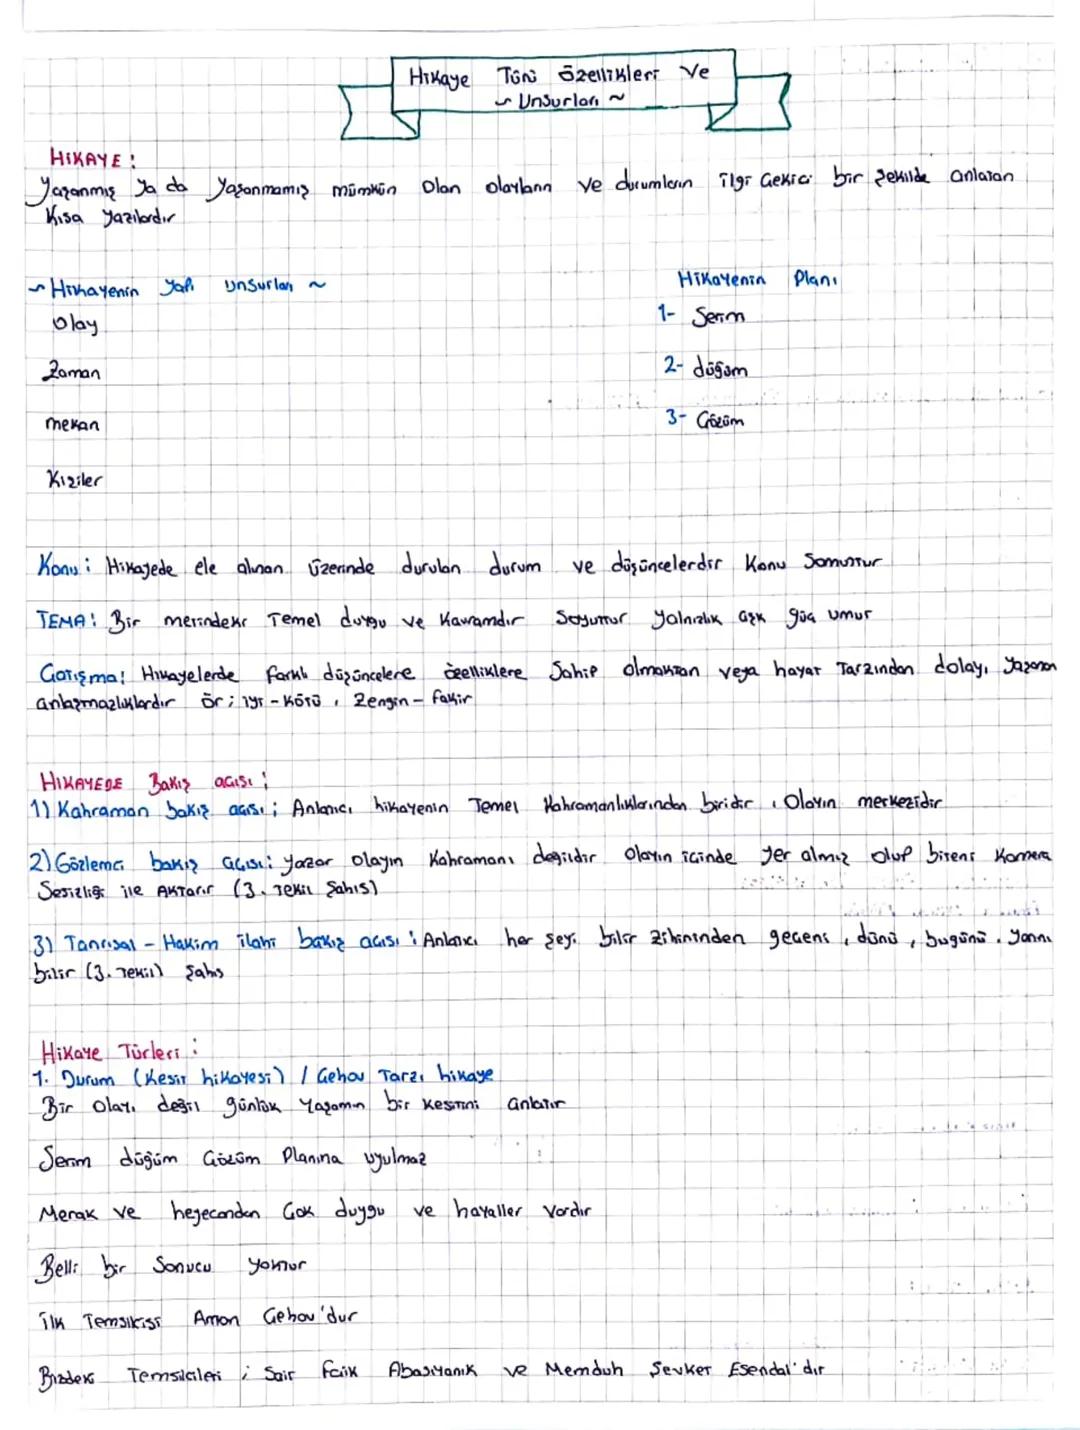 Hikaye Türü Özellikleri Ve
~ Unsurları ~
HİKAYE :
Yaşanmış ya da yaşanmamış mümkün olan olayların ve durumların ilgi çekici bir şekilde anlatan
Kısa yazılardır
~ Hikayenin Yapı Unsurları ~
Hikayenin Planı
Olay
1- Serim
Zaman
2- düğüm
mekan
3- Çözüm
Kişiler
Konu : Hikayede ele alınan üzerinde durulan durum ve düşüncelerdir Konu Somuttur
TEMA : Bir metindeki Temel duygu ve Kavramdır Soyuttur yalnızlık aşk güç umut
Çatışma : Hikayelerde farklı düşüncelere özelliklere Sahip olmaktan veya hayat Tarzından dolayı Yaşanan
anlaşmazlıklardır ör ; iyi - kötü , Zengin - fakir
HİKAYEDE Bakış açısı :
1) Kahraman bakış açısı ; Anlatıcı hikayenin Temel Kahramanlıklarından biridir , Olayın merkezidir
2) Gözlemci bakış açısı : yazar olayın Kahramanı değildir Olayın içinde yer almış olup biteni Kamera
Sesizliği ile Aktarır (3. Tekil Şahıs)
3) Tanrısal - Hakim ilahi bakış açısı : Anlatıcı her şeyi bilir Zihninden geçeni , dünü , bugünü , yarını
bilir (3. Tekil) Şahıs
Hikaye Türleri :
1. Durum (Kesit hikayesi) / Çehov Tarzı hikaye
Bir Olayı değil günlük Yaşamın bir kesitini anlatır
Serim düğüm Çözüm Planına uyulmaz
Merak ve heyecandan Çok duygu ve hayaller Vardır
Belli bir Sonucu yoktur
ilk Temsilcisi Anton Çehov'dur
Bizdeki Temsilcileri ; Sair Faik Abasıyanık ve Memduh Şevket Esendal'dır